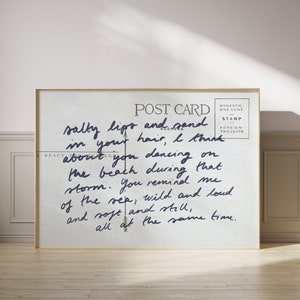 POST CARD
DOMESTIC
ONE CENT
STAMP
FOREIGN
TWO CENTS
salty lips and sand
in your hair, I think
about you dancing on
the beach during that
storm. You remind me
of the sea, wild and loud
and soft and still,
all at the same time.